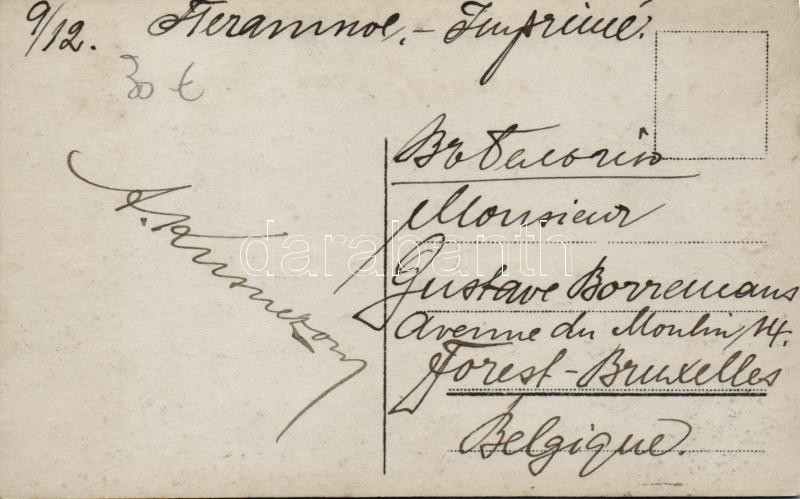 9/12. Печатное. - Imprimé.
30 €
Въ Бельгiю
Monsieur
Gustave Borremans
Avenue du Moulin, 14.
Forest-Bruxelles
Belgique.
A. Kusnezow
darabanth